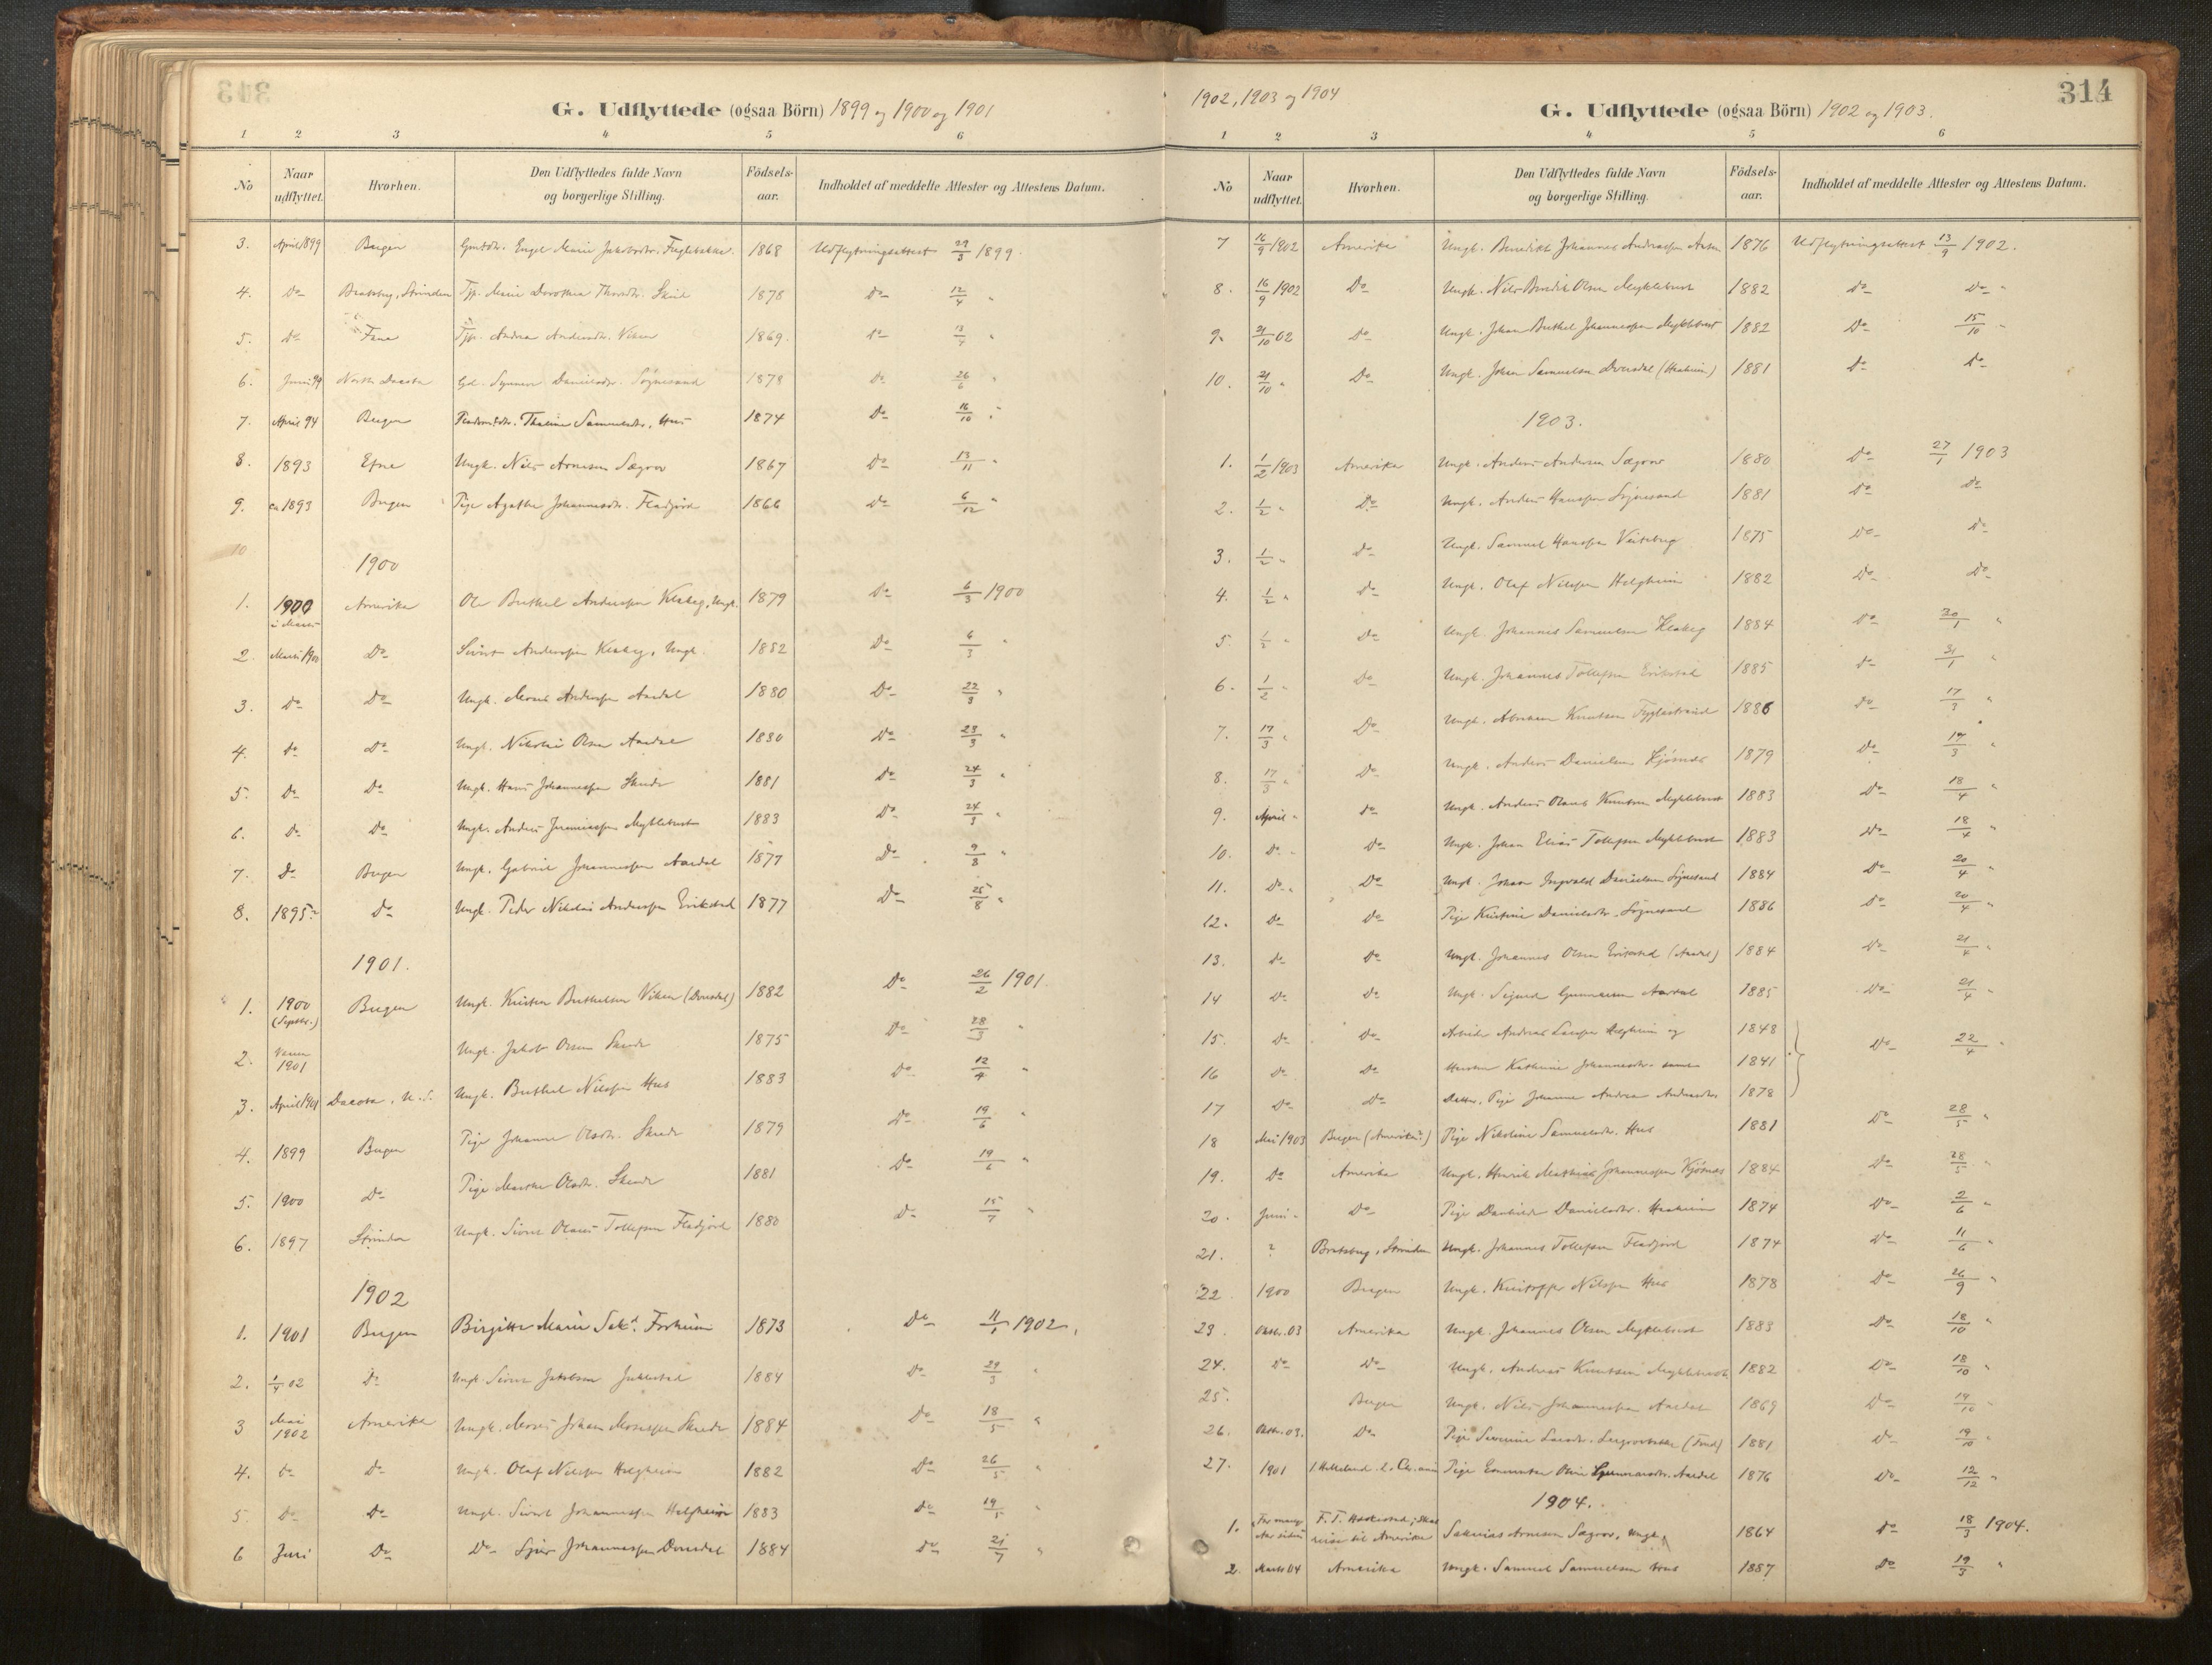 G. Udflyttede (ogsaa Börn) 1899 og 1900 og 1901
1 2 3 4 5 6
No Naar udflyttet. Hvorhen. Den Udflyttedes fulde Navn og borgerlige Stilling. Födsels-aar. Indholdet af meddelte Attester og Attestens Datum.
3. April 1899 Bergen Engel Marie Jakobsdtr. Fuglebakke. 1868 Udflytningsattest 29/3 1899.
4. Do Bratsberg, Strinden Tjp. Marie Dorothea 1878 Do 12/4 "
5. Do Tjp. Andrea Andersdtr. Viken 1869. Do 13/4 "
6. Juni 94 North Dacota Synneve Danielsdtr. Sögnesand 1878 Do 26/6 "
7. April 94 Bergen Thaline Samuelsdtr. Hus 1874 Do 16/10 "
8. 1893 Ungk. Nils Arnesen Sægrov 1867 Do 13/11 "
9. ca 1893 Bergen Pige Agathe Johannesdtr. Fladjord 1866 Do 6/12 "
10
1900
1. 1900 i Marts Amerika Ole Berthel Anderssen Klakeg, Ungk. 1879 Do 6/3 1900
2. Marts 1900 Do Sivert Anderssen Klakeg, Ungk. 1882 Do 6/3 "
3. Do Do Ungk. Anderssen Aardal 1880 Do 22/3 "
4. Do Do Ungk. Nikolai Olsen Aardal 1880 Do 23/3 "
5. Do Do Ungk. Hans Johannessen Skrede 1881 Do 24/3 "
6. Do Do Ungk. Anders Jeremiassen Myklebust 1883 Do 24/3 "
7. Do Bergen Ungk. Gabriel Johannessen Aardal 1877 Do 9/8 "
8. 1895? Do Ungk. Peder Nikolai Anderssen Erikstad 1877 Do 25/8 "
1901.
1. 1900 (Septbr.) Bergen Ungk. Kristen Berthelsen Viken (Dvergsdal) 1882 Do 26/2 1901.
2. 1901 Ungk. Jakob Olsen Skrede 1875 Do 28/3 "
3. April 1901 Dacota, N. S. Ungk. Berthel Nilssen Hus 1883 Do 12/4 "
4. 1899 Bergen Pige Johanne Olsdtr. Skrede 1879 Do 19/6 "
5. 1900 Do Pige Marthe Olsdtr. Skrede 1881 Do 19/6 "
6. 1897 Strinden Ungk. Sivert Olaus Tollefsen Fladjord 1880 Do 15/7 "
1902
1. 1901 Bergen Birgitte Marie 1873 Do 11/1 1902.
2. 1/4 02 Do Ungk. Sivert Jakobsen 1884 Do 29/3 "
3 Mai 1902 Amerika Ungk. Moses Johan Mosessen Skrede 1884 Do 18/5 "
4. Do Do Ungk. Olaf Nilssen Helgheim 1882 Do 26/5 "
5. Do Do Ungk. Sivert Johannessen Helgheim 1883 Do 19/5 "
6 Juni Do Do Johannessen 1884 Do 21/7 "
314
1902, 1903 og 1904
G. Udflyttede (ogsaa Börn) 1902 og 1903.
1 2 3 4 5 6
No Naar udflyttet. Hvorhen. Den Udflyttedes fulde Navn og borgerlige Stilling. Födsels-aar. Indholdet af meddelte Attester og Attestens Datum.
7 16/9 1902 Amerika Ungk. Benedikt Johannes Andreassen 1876 Udflytningsattest 13/9 1902.
8. 16/9 1902 Do Ungk. Nils Bendik Olsen Myklebust 1882 Do Do "
9. 21/10 02 Do Ungk. Johan Berthel Johannessen Myklebust 1882 Do 15/10 "
10. 21/10 " Do Ungk. Johan Samuelsen (Haaheim) 1881 Do Do
1903.
1. 1/2 1903 Amerika Ungk. Anders Andersen Sægrov 1880 Do 27/1 1903
2. 1/2 " Do Ungk. Anders Hanssen Sögnesand 1881 Do Do
3. 1/2 " Do Ungk. Samuel Hanssen Veiteberg 1875 Do Do
4. 1/2 " Do Ungk. Olaf Nilssen Helgheim 1882 Do Do
5. 1/2 " Do Ungk. Johannes Samuelsen Klakeg 1884 Do 30/1 "
6. 1/2 " Do Ungk. Johannes Tollefsen Erikstad 1885 Do 31/1 "
7. 17/3 " Do Ungk. Abraham Knutsen 1886 Do 17/3 "
8. 17/3 " Do Ungk. Anders Danielsen Kjösnæs 1879 Do 17/3 "
9. April " Do Ungk. Anders Olaus Knutsen Myklebust 1883 Do 18/4 "
10. Do " Do Ungk. Johan Elias Tollefsen Myklebust 1883 Do 18/4 "
11. Do " Do Ungk. Johan Ingvald Danielsen Sögnesand 1884 Do 20/4 "
12. Do Do Pige Kristine Danielsdtr. Sögnesand 1886 Do 20/4 "
13. Do Do Ungk. Johannes Olsen Erikstad (Aardal) 1884 Do 21/4 "
14 Do Do Ungk. Sigurd Gunnarsen Aardal 1885 Do 21/4 "
15. Do Do Andreas Larssen Helgheim og 1848
16 Do Do Hustru Kathrine Johannesdtr. samt 1841 Do 22/4 "
17 Do Do Datter, Pige Johanne Andrea Andreasdtr. 1878
18 Mai 1903 Bergen (Amerika?) Pige Nikoline Samuelsdtr. Hus 1881 Do 28/5 "
19. Do Amerika Ungk. Henrik Mathias Johannessen Kjösnæs 1884 Do 28/5 "
20. Juni " Do Pige Danielsdtr. Haaheim 1874 Do 2/6 "
21. ? Bratsberg, Strinden Ungk. Johannes Tollefsen Fladjord 1874 Do 11/6 "
22. 1900 Bergen Ungk. Kristoffer Nilssen Hus 1878 Do 26/9 "
23. Oktbr. 03 Amerika Ungk. Johannes Olsen Myklebust 1883 Do 18/10 "
24. Do Do Ungk. Andreas Knutsen Myklebust 1882 Do 18/10 "
25. Bergen Ungk. Nils Johannessen Aardal 1869 Do 19/10 "
26. Oktbr. 03. Do Pige Severine Larsdtr. 1881 Do 19/10 "
27. 1901 Pige Oline Gunnarsdtr. Aardal 1876 Do 12/12 "
1904.
1. For mange Aar siden F. T. reise til Amerika Sakarias Arnesen Sægrov, Ungk. 1864 Do 18/3 1904.
2. Marts 04 Amerika Ungk. Samuel Samuelsen Hus 1887 Do 19/3 "